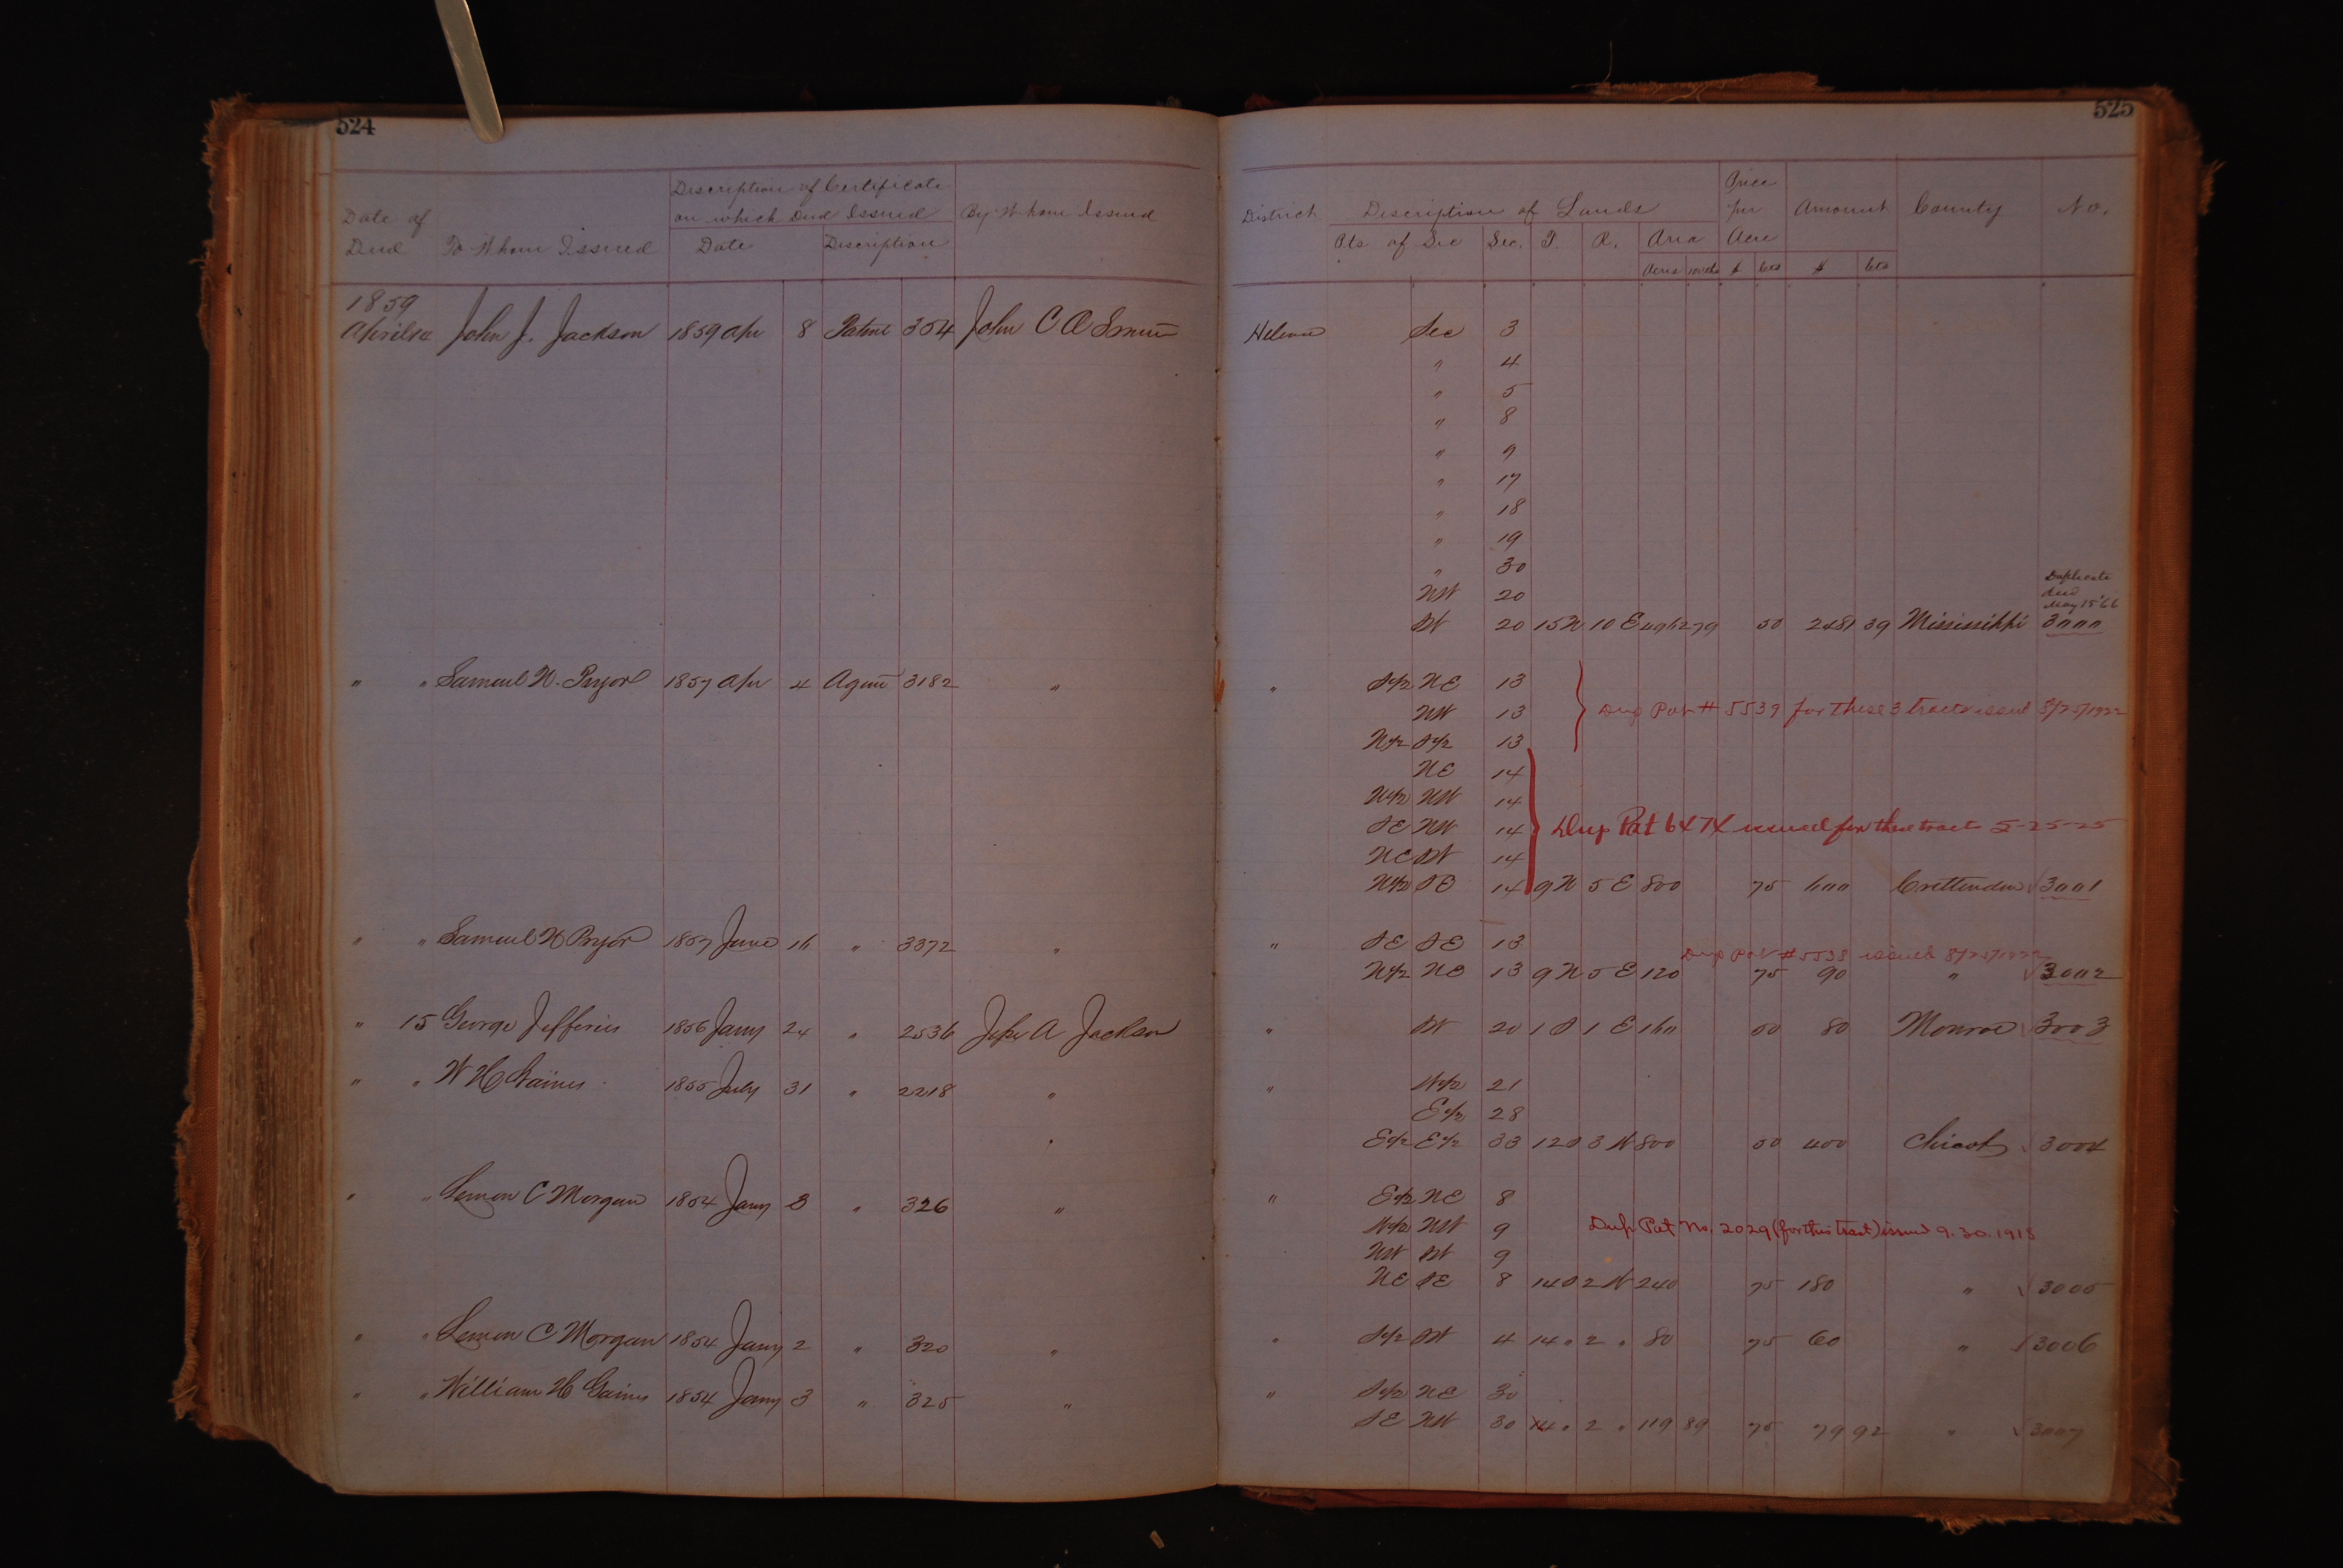 524
Date of Deed To Whom Issued Description of Certificate on which Deed Issued Date Description By Whom Issued
1859
April 14 John J. Jackson 1859 Apr 8 Patent 354 John C
" " Samuel W. Pryor 1857 Apr 4 Agent 3182 "
" " Samuel W Pryor 1857 June 16 " 3372 "
" 15 George Jefferies 1856 Jany 24 " 2536 Jesse A Jackson
" " W H Gaines 1855 July 31 " 2218 "
" " Lemon C Morgan 1854 Jany 3 " 326 "
" " Lemon C Morgan 1854 Jany 2 " 320 "
" " William H Gaines 1854 Jany 3 " 325 "
525
District Description of Lands Pts of Sec Sec. T. R. Area Acres Price per Acre $ Cts Amount $ Cts County No.
Helena Sec 3
" 4
" 5
" 8
" 9
" 17
" 18
" 19
" 30
Duplicate
deed
May 15 '66
NW 20
SW 20 15 N 10 E 4962 79 50 2481 39 Mississippi 3000
" S1/2 NE 13
NW 13 Dup Pat # 5539 for these 3 tracts issued 8/25/1922
N1/2 S1/2 13
NE 14
N1/2 NW 14
SE NW 14 Dup Pat 6474 issued for these tract 5-25-25
NE SW 14
N1/2 SE 14 9 N 5 E 800 75 600 Crittenden 3001
" SE SE 13
Dup Pat # 5538 issued 8/25/1922
N1/2 NE 13 9 N 5 E 120 75 90 " 3002
" SW 20 1 S 1 E 160 50 80 Monroe 3003
" W1/2 21
E1/2 28
E1/2 E1/2 33 12 S 3 W 800 50 400 Chicot 3004
" E1/2 NE 8
W1/2 NW 9 Dup Pat No. 2029 (for this tract) issued 9.30.1918
NW SW 9
NE SE 8 14 S 2 W 240 75 180 " 3005
" S1/2 SW 4 14 " 2 " 80 75 60 " 3006
" S1/2 NE 30
SE NW 30 14 " 2 " 119 89 75 79 92 " 3007